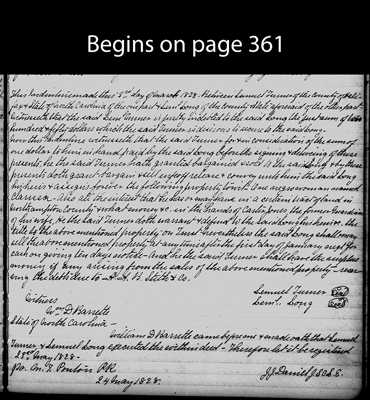 Begins on page 361
This Indenture made this 15th day of March 1828. Between Lemuel Turner of the county of Hali-
fax & State of North Carolina of the one part & Leml Long of the county & State aforesaid of the other part
Witnesseth that the said Leml Turner is justly indebted to the said Long the just sum of
hundred & fifty dollars which the said Turner is desirous to secure to the said Long.
now this Indenture witnesseth that the said Turner for & in consideration of the sum of
one dollar to him in hand paid by the said Long before the signing & delivering of these
presents, he the said Turner hath granted bargained & sold & by these
presents doth grant bargain sell enfeoff release & convey unto him the said Long
his heirs & assigns forever the following property to wit: One negro woman named
Clarissa. Also all the interest that he has or may have in a certain tract of land in
Northampton County & what money is in the hands of Carter Jones the former Guardian
of his wife, & the said Turner doth warrant & defend to the said Long his heirs &c. the
title to the above mentioned property on Trust nevertheless the said Long shall may
sell the above mentioned property at any time after the first day of January next for
cash on giving ten days notice. And he the said Turner shall have the surplus
money if any arising from the sales of the above mentioned property
the debt due to H. Smith & Co.
Lemuel Turner Seal
Leml. Long Seal
Witness
Wm D Barrette
State of North Carolina
William D Barrette came before me & made oath that Lemuel
Turner, & Lemuel Long executed the within deed. Therefore let it be registered
23rd May 1828.
J J Daniel J.S.C.L.E.
Reg. M. T. Ponton P.R.
24 May 1828.